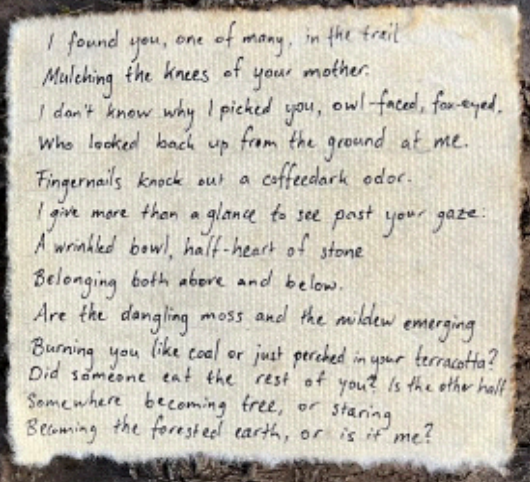 I found you, one of many, in the trail
Mulching the knees of your mother.
I don't know why I picked you, owl-faced, fox-eyed,
Who looked back up from the ground at me.
Fingernails knock out a coffeedark odor.
I give more than a glance to see past your gaze:
A wrinkled bowl, half-heart of stone
Belonging both above and below.
Are the dangling moss and the mildew emerging
Burning you like coal or just perched in your terracotta?
Did someone eat the rest of you? Is the other half
Somewhere becoming tree, or staring
Becoming the forested earth, or is it me?